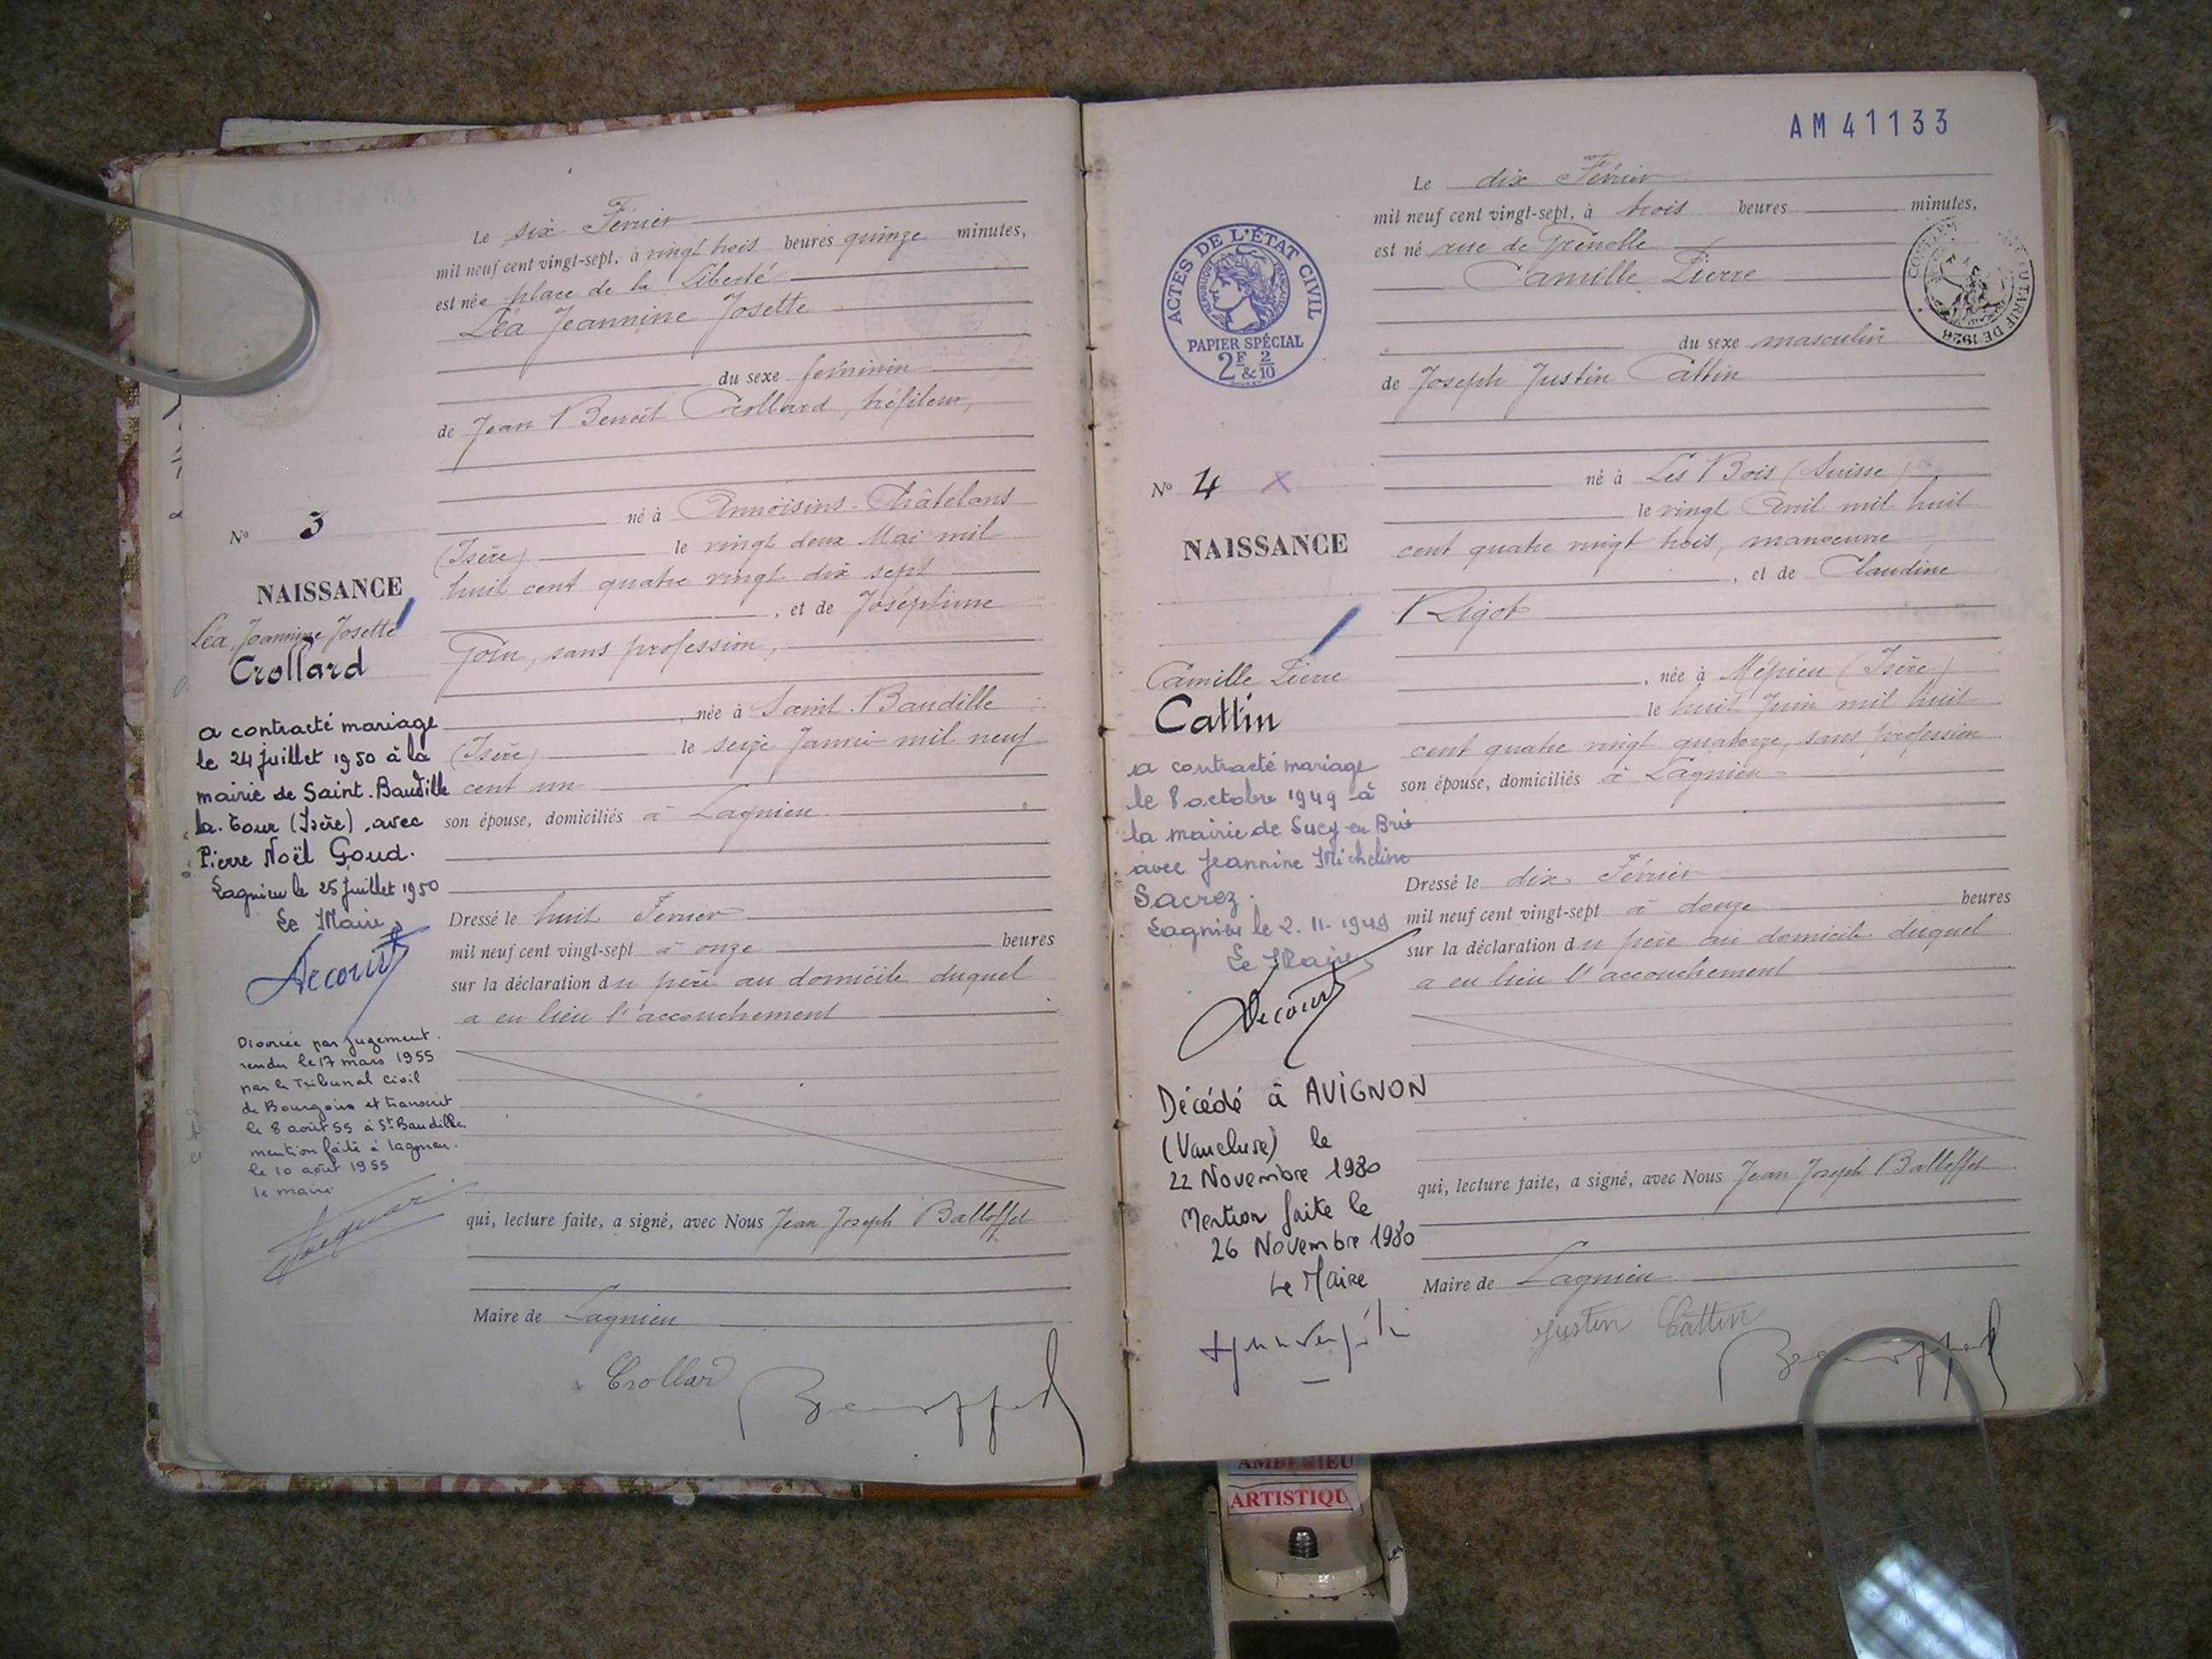 Le six Février
mil neuf cent vingt-sept, à vingt trois heures quinze minutes,
est née place de la Liberté
Léa Jeannine Josette
du sexe féminin
de Jean Benoît Crollard, tréfileur,
né à Annoisins-Châtelans
(Isère) le vingt deux Mai mil
huit cent quatre vingt dix sept
, et de Joséphine
Goin, sans profession,
née à Saint-Baudille
(Isère) le seize Janvier mil neuf
cent un
son épouse, domiciliés à Lagnieu
Dressé le huit Février
mil neuf cent vingt-sept à onze heures
sur la déclaration du père au domicile duquel
a eu lieu l'accouchement
qui, lecture faite, a signé, avec Nous Jean Joseph Balloffet
Maire de Lagnieu
Crollard
No 3
NAISSANCE
Léa, Jeannine Josette
Crollard
a contracté mariage
le 24 juillet 1950 à la
mairie de Saint-Baudille
la-Tour (Isère), avec
Pierre Noël Goud.
Lagnieu le 25 juillet 1950
Le Maire
Divorcée par jugement
rendu le 17 mars 1955
par le Tribunal civil
de Bourgoin et transcrit
le 8 août 55 à St Baudille
mention faite à Lagnieu.
le 10 août 1955
le maire
AM 41133
Le dix Février
mil neuf cent vingt-sept, à trois heures minutes,
est né rue de Grenolle
Camille Pierre
du sexe masculin
de Joseph Justin Cattin
né à Les Bois (Suisse)
le vingt Avril mil huit
cent quatre vingt trois, manoeuvre,
, et de Claudine
Rigot
, née à Mépieu (Isère)
le huit Juin mil huit
cent quatre vingt quatorze, sans profession
son épouse, domiciliés à Lagnieu
Dressé le dix Février
mil neuf cent vingt-sept à douze heures
sur la déclaration du père au domicile duquel
a eu lieu l'accouchement
qui, lecture faite, a signé, avec Nous Jean Joseph Balloffet
Maire de Lagnieu
Justin Cattin
ACTES DE L'ÉTAT CIVIL
RÉPUBLIQUE FRANÇAISE
PAPIER SPÉCIAL
2F & 2/10
TARIF DE 1926
No 4 x
NAISSANCE
Camille Pierre
Cattin
a contracté mariage
le 8 octobre 1949 à
la mairie de Sucy-en Brie
avec Jeannine Micheline
Sacrez.
Lagnieu le 2.11.1949
Le Maire
Décédé à AVIGNON
(Vaucluse) le
22 Novembre 1980
Mention faite le
26 Novembre 1980
Le Maire
AMBERIEU
ARTISTIQU